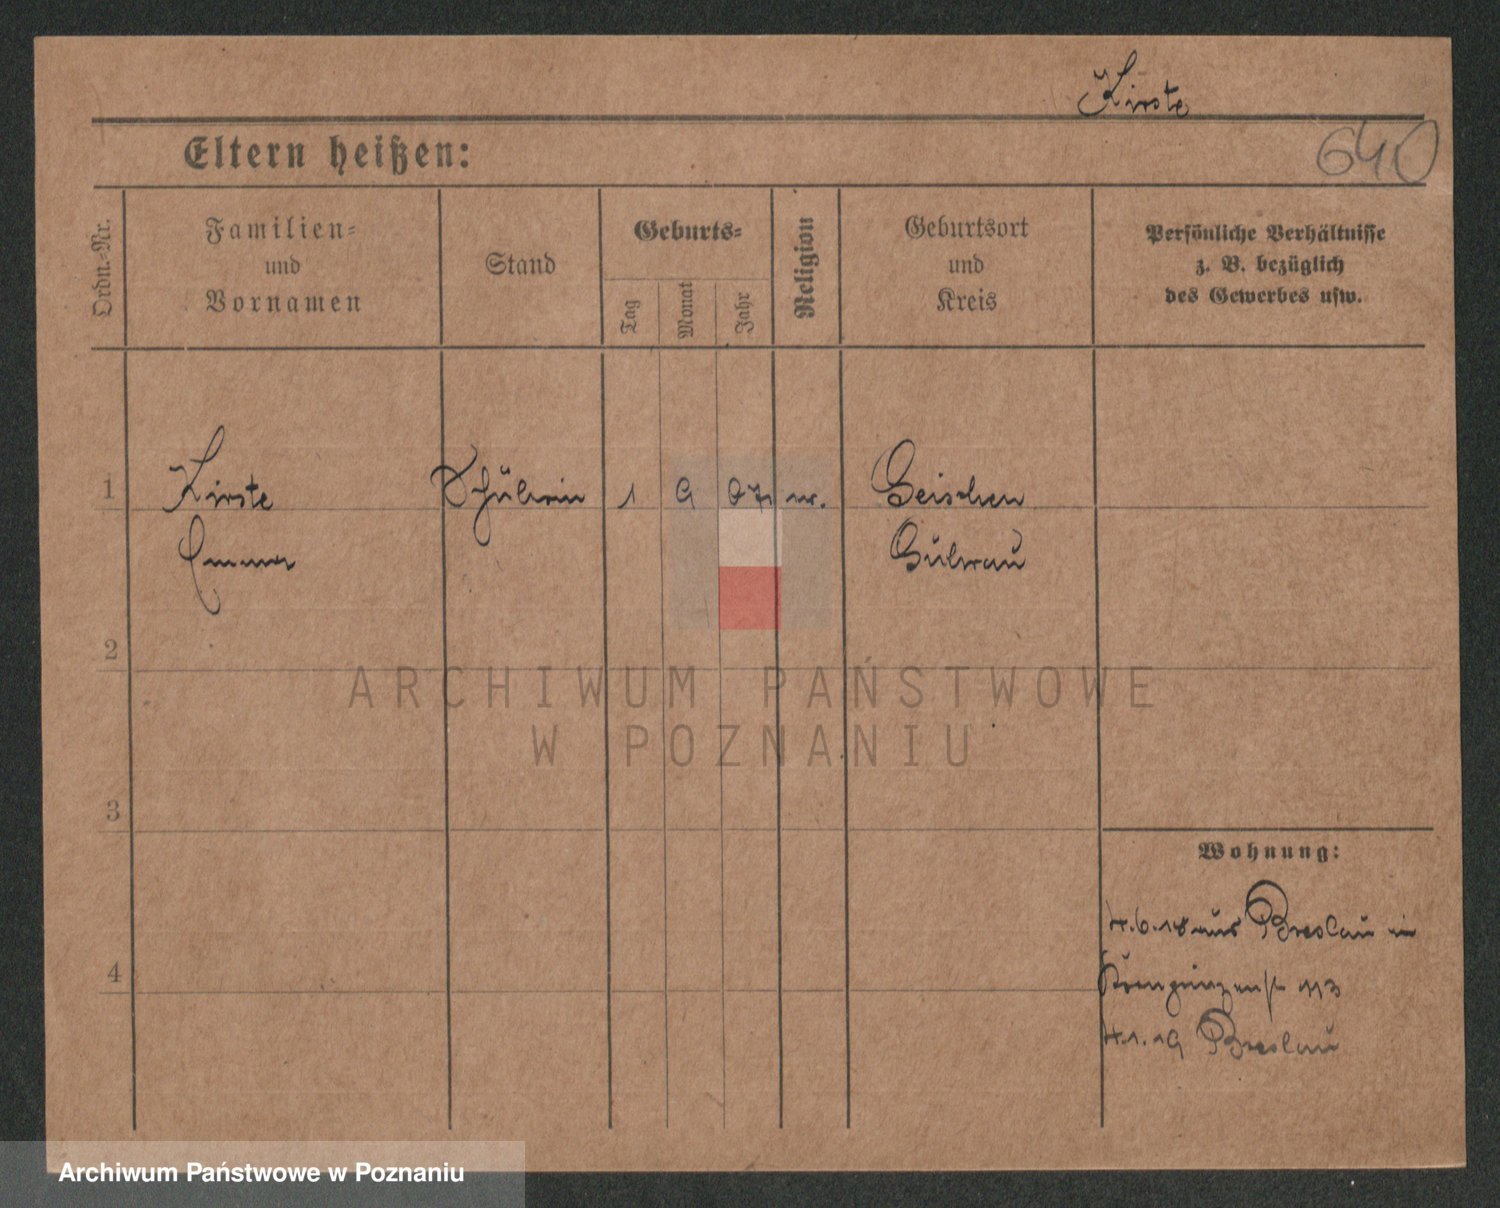 Kirste
640
Eltern heißen:
Ordn.-Nr.
Familien-
und
Vornamen
Stand
Geburts-
Tag
Monat
Jahr
Religion
Geburtsort
und
Kreis
Persönliche Verhältnisse
z. B. bezüglich
des Gewerbes usw.
1 Kirste Schülerin 1 9 07 Geischen
Emma Guhrau
2
3
4
Wohnung:
4.6.18 aus Breslau in
Kronprinzenst 113
4.1.19 Breslau
ARCHIWUM PAŃSTWOWE
W POZNANIU
Archiwum Państwowe w Poznaniu